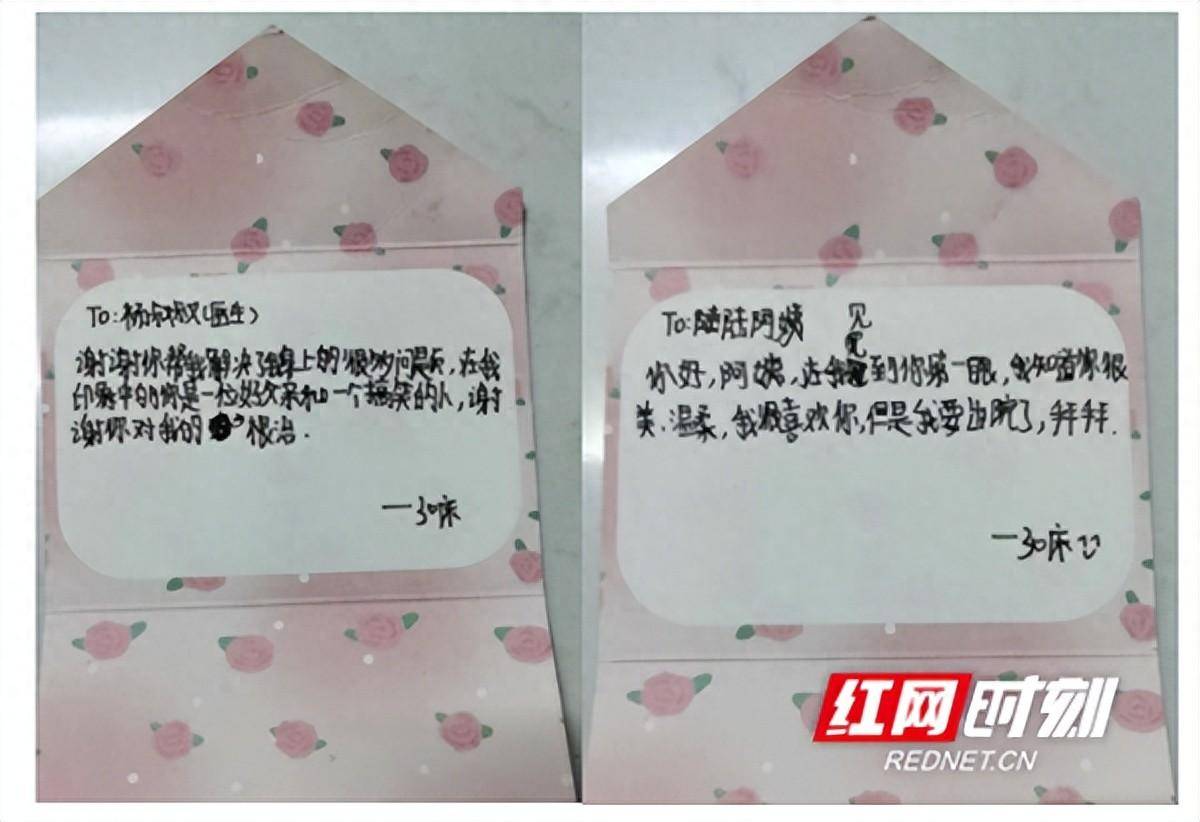 To:杨叔叔(医生)
谢谢你帮我解决了我身上的很多问题,在我
印象中的你是一位好父亲和一个搞笑的人,谢
谢你对我的 根治.
一30床
To:陆陆阿姨
见
见
你好,阿姨,在我到你第一眼,我知道你很
美、温柔,我很喜欢你,但是我要出院了,拜拜.
一30床
红网时刻
REDNET.CN